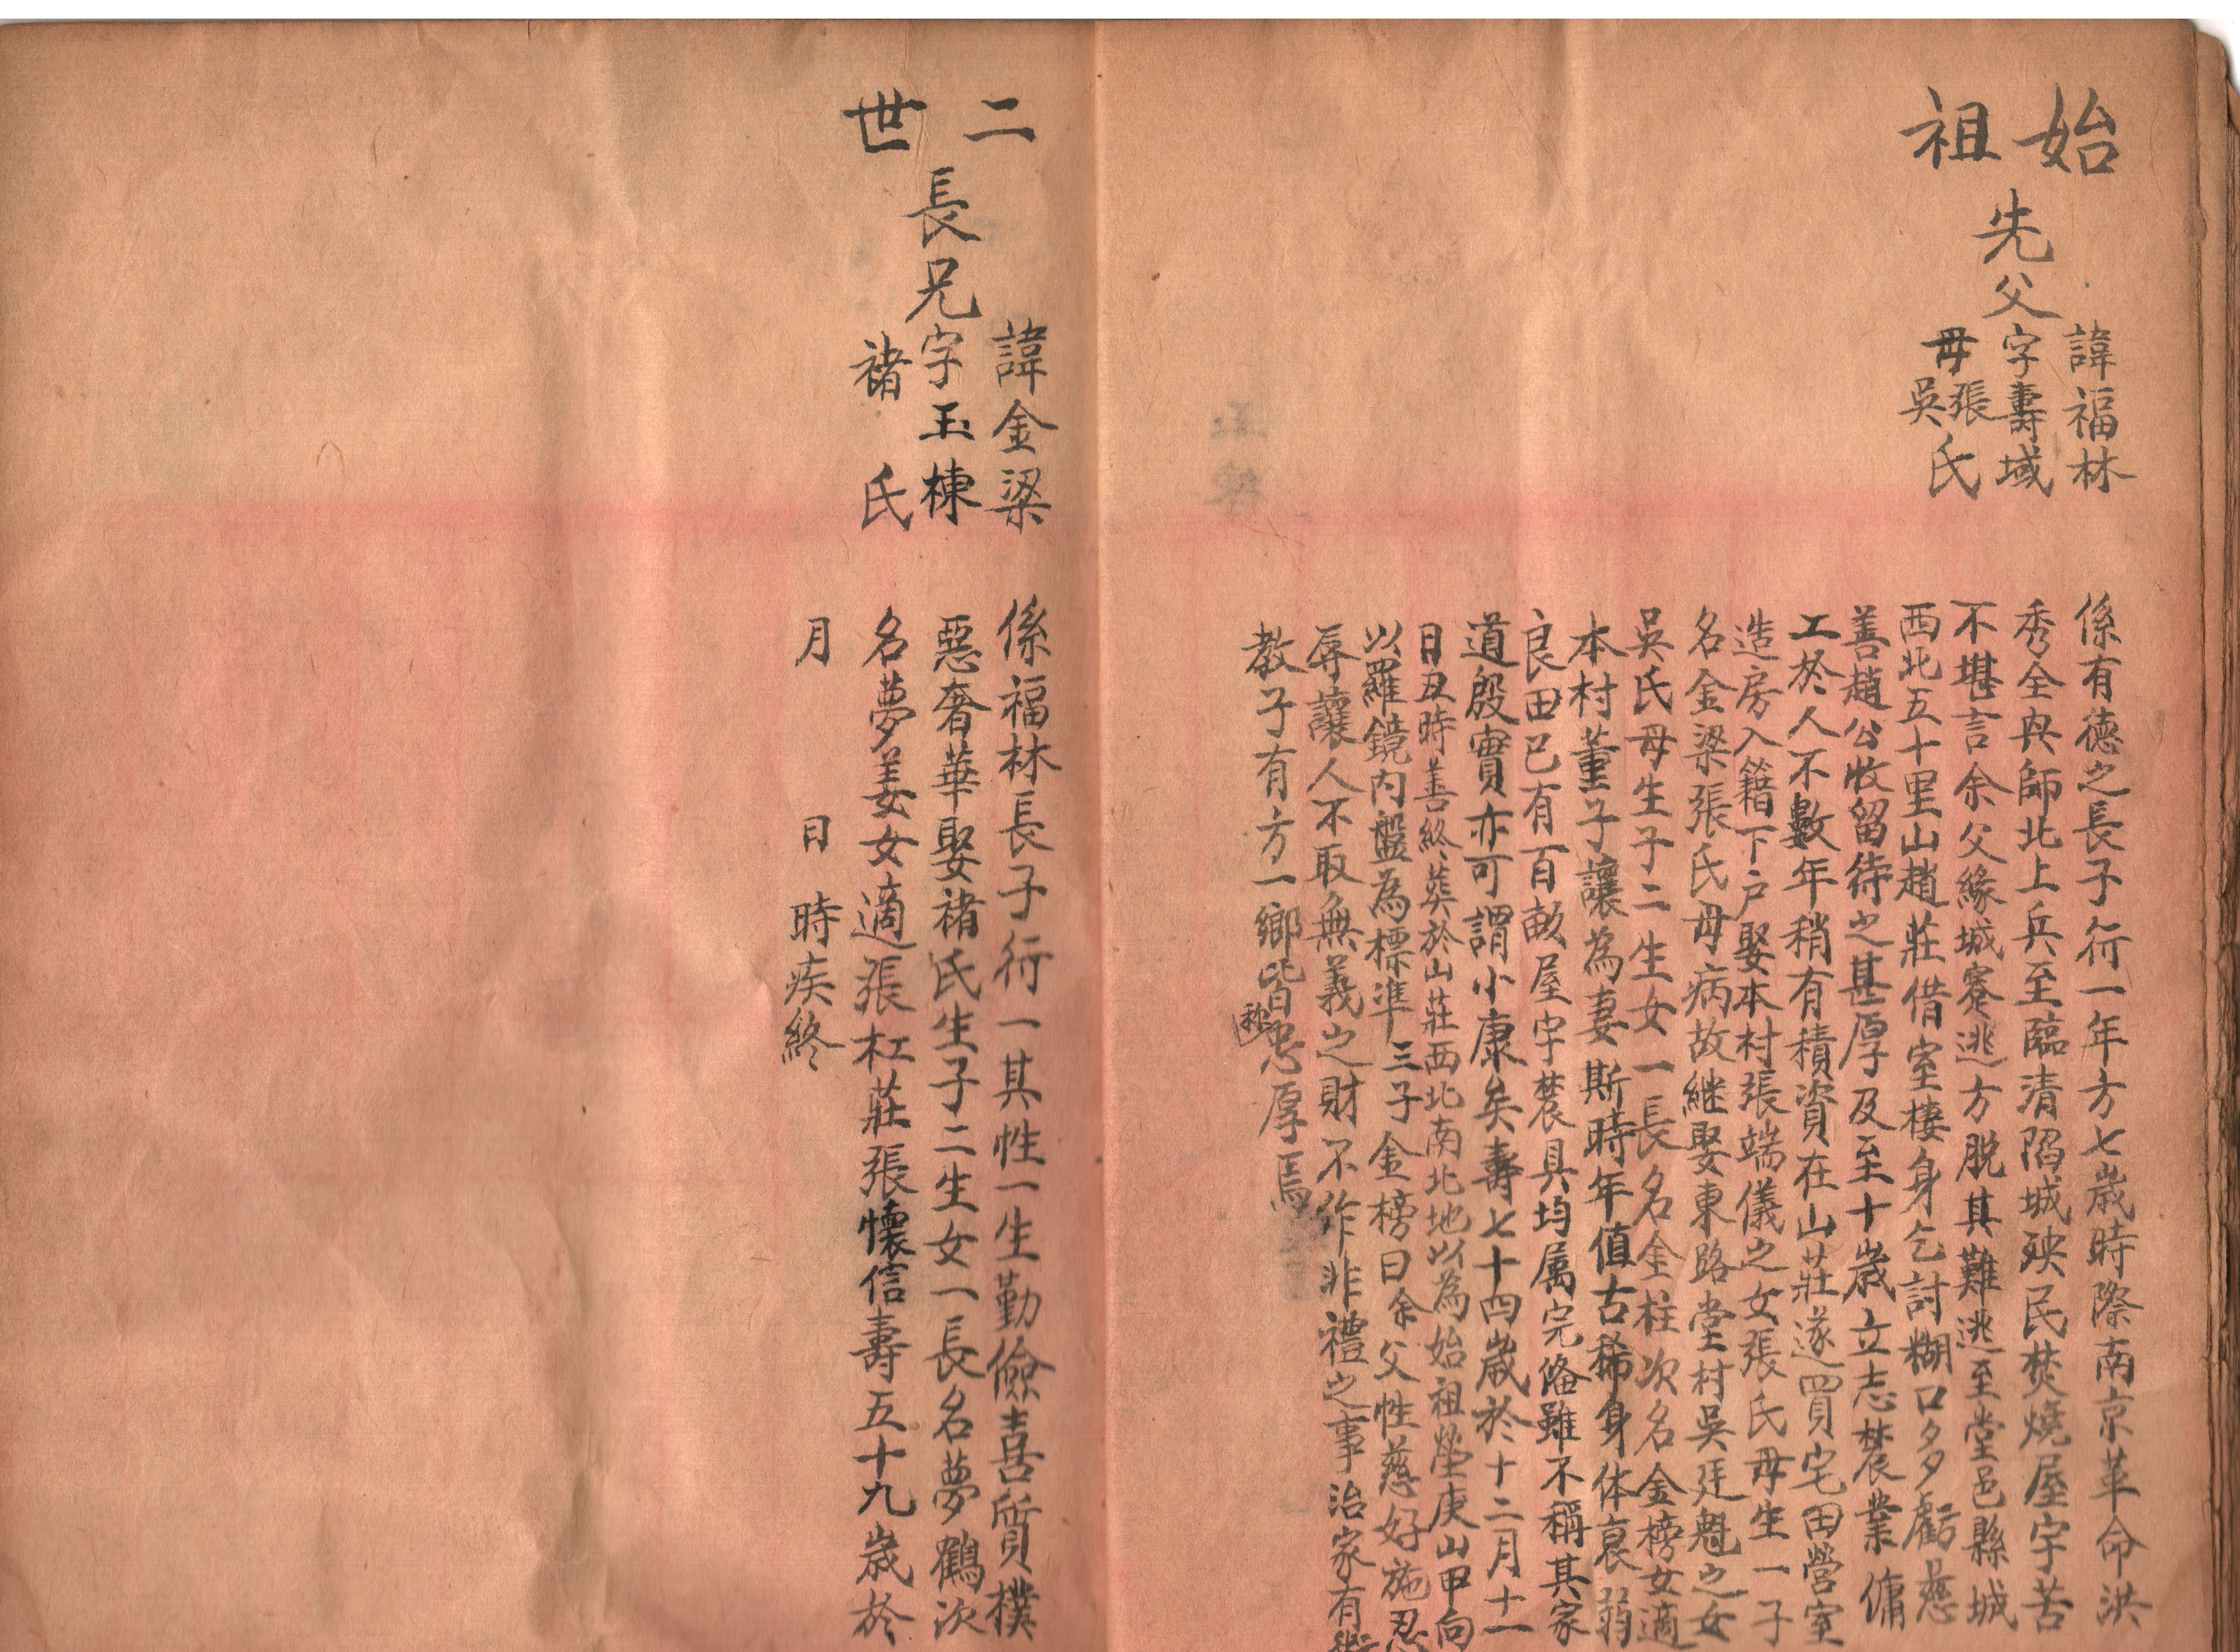 始祖
先父
諱福林
字壽域
母張吳氏
係有德之長子行一年方七歲時際南京革命洪
秀全與師北上兵至臨清陷城殃民焚燒屋宇苦
不堪言余父緣城寨逃方脫其難逃至堂邑縣城
西北五十里山趙莊借室棲身乞討糊口多虧慈
善趙公收留待之甚厚及至十歲立志農業傭
工於人不數年稍有積資在山莊遂買宅田營室
造房入籍下户娶本村張端儀之女張氏母生一子
名金梁張氏母病故継娶東路堂村吳廷魁之女
吳氏母生子二生女一長名金柱次名金榜女適
本村董子讓為妻斯時年值古稀身体衰弱
良田已有百畝屋宇農具均属完俻雖不稱其家
道殷實亦可謂小康矣壽七十四歲於十二月十一
日丑時善終葬於山莊西北南北地以為始祖塋庚山甲向
以羅鏡內盤為標準三子金榜曰余父性慈好施忍
辱讓人不取無義之財不作非禮之事治家有
教子有方一鄉皆稱忠厚焉
二世
長兄
諱金梁
字玉棟
褚氏
係福林長子行一其性一生勤儉喜質樸
惡奢華娶褚氏生子二生女一長名夢鶴次
名夢姜女適張杠莊張懷信壽五十九歲於
月 日 時疾終